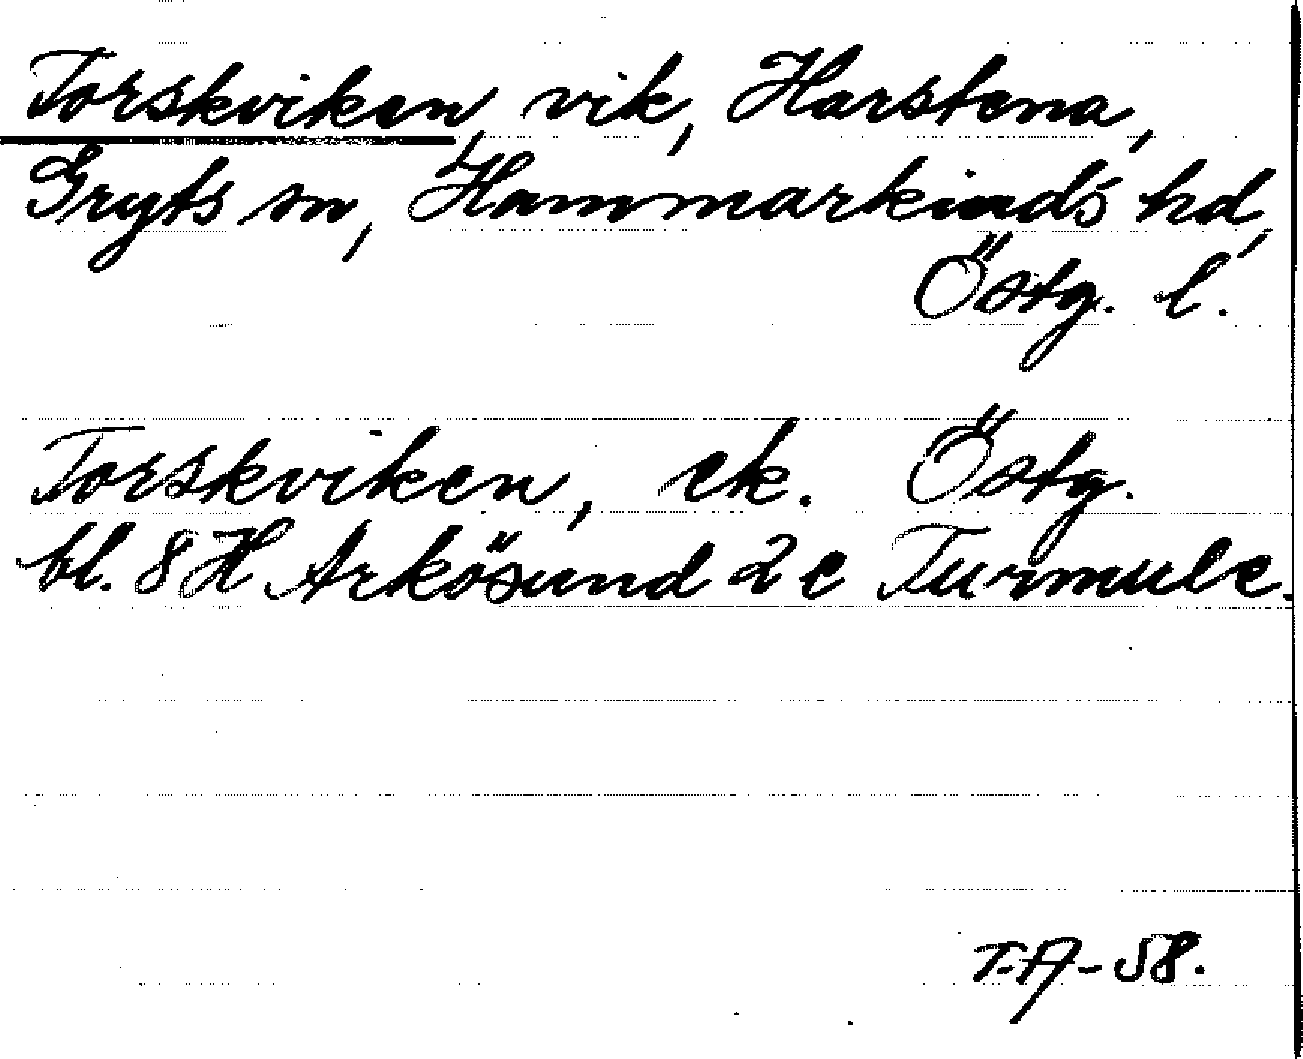 Torskviken, vik, Harstena,
Gryts sn, Hammarkinds hd,
Östg. l.
Torskviken, ek. Östg.
bl. 8 H Arkösund 2 e Turmule.
T.A-58.